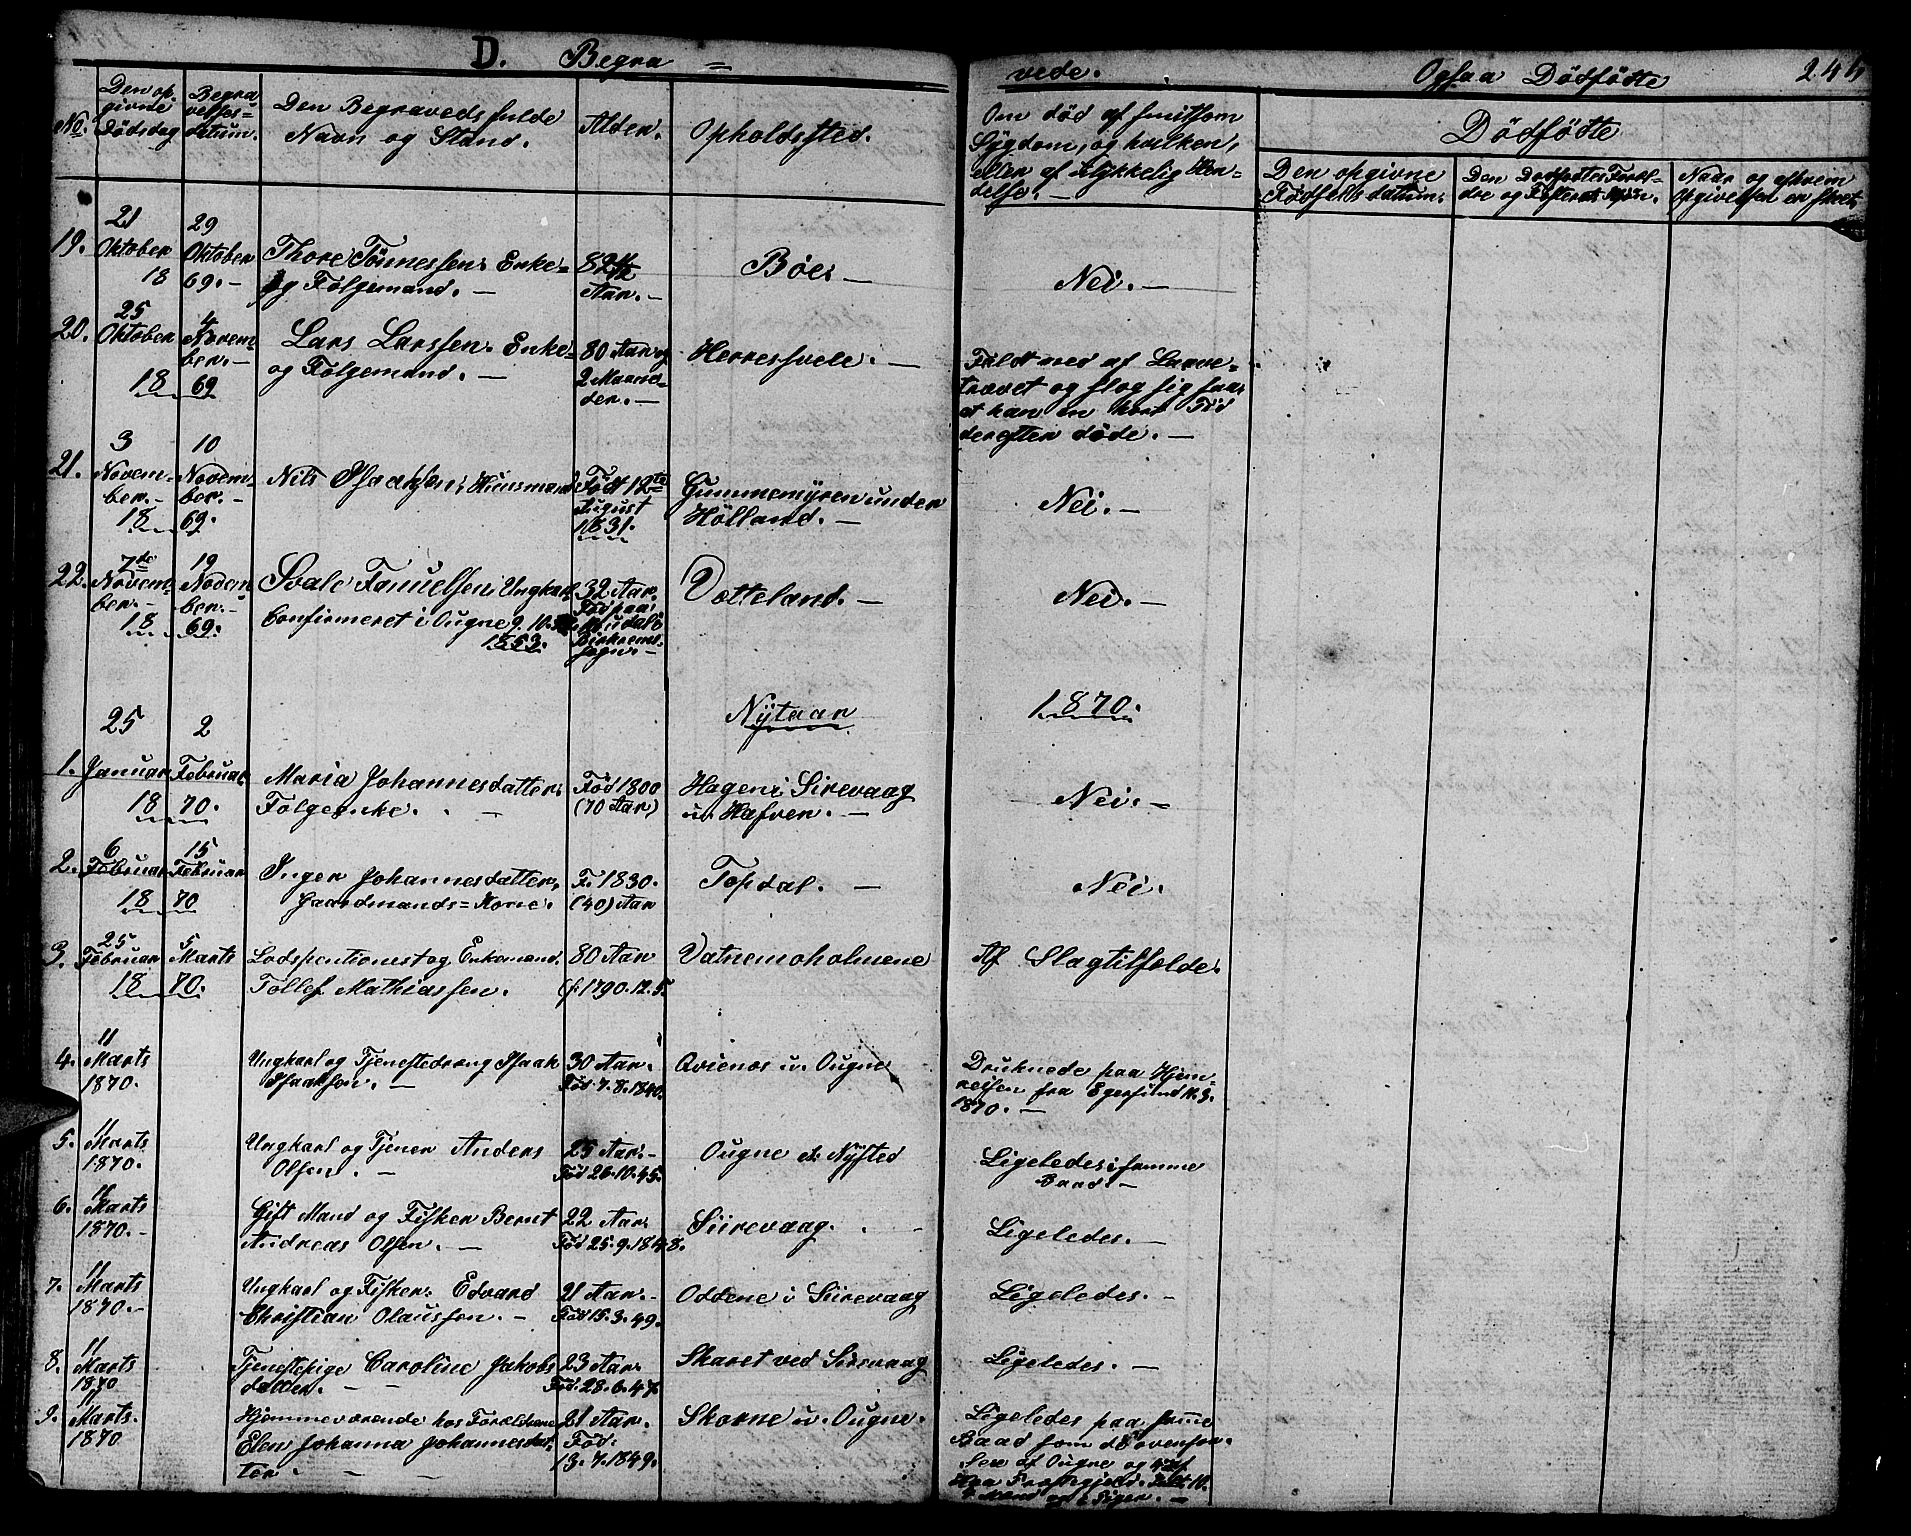 D. Begra =
vede. Ogsaa Dødfødte 244
No. Den op-
givne
Dødsdag
Begra
velses=
datum.
Den Begravedes fulde
Navn og Stand.
Alder.
Opholdssted.
Om død af smitsom
Sygdom, og hvilken,
eller af ulykkelig Hen-
delse. -
Dødfødte
Den opgivne
Fødselsdatum.
Den Dødfødtes Foræl-
dre og
Naar og efter hvem
Opgivelsen er skeet.
19. 21 Oktober 18
29 Oktober 69. -
Thore Tønnessen. Enke=
og Følgemand. -
82 Aar. -
Bøe. -
Nei. -
20. 25 Oktober 18
4 Novem-
ber. - 69
Lars Larssen. Enke=
og Følgemand. -
80 Aar og
2 Maane-
der. -
Herressvele. -
Faldt ned af Laave-
trævet og slog sig saa,
at han en kort Tid
derefter døde. -
21. 3 Novem-
ber. - 18
10 Novem-
ber. - 69.
Nils Isaaksen, Huusmand
Født 12te
August
1831.
Gummemyren under
Hølland. -
Nei. -
22. 7de Novem-
ber. - 18
19 Novem-
ber. - 69.
Svale Tanuelsen, Ungkarl
Confirmeret i Ougne 9. 10.
1853.
32 Aar.
Fød paa
Birkrems
sogn. -
Votteland. -
Nei. -
Nytaar
1870.
1. 25 Januar 18
2 Februar 70.
Maria Johannesdatter.
Følgeenke. -
Fød 1800
(70 Aar)
Hagen i Sirevaag
u. Hafven. -
Nei. -
2. 6 Februar 18
15 Februar 70
Inger Johannesdatter,
Gaardmands=Kone.
F. 1830.
(40) Aar
Topdal. -
Nei.
3. 25 Februar 18
5 Marts 70.
Lodspentionist og Enkemand.
Tollef Mathiassen.
80 Aar
(f. 1790. 12. 5.
Vatnemoholmene
Af Slagtilfelde.
4. 11 Marts
1870.
Ungkarl og Tjenestedreng Isaak
Isaaksen. -
30 Aar.
Fød. 7. 8. 1840.
Qvienes u. Ougne
Druknede paa Hjem-
reisen fra Egersund 11. 3.
1870. -
5. 11 Marts
1870.
Ungkarl og Tjener Anders
Olsen. -
25 Aar. -
Fød 26. 10. 45.
Ougne d. Nysted
Ligeledes i samme
Baad. -
6. 11 Marts
1870. -
Gift Mand og Fisker Bernt
Andreas Olsen. -
22 Aar.
Fød 25. 9. 1848.
Siirevaag. -
Ligeledes. -
7. 11 Marts
1870. -
Ungkarl og Fisker. Edvard
Christian Olaussen. -
21 Aar. -
Fød 15. 3. 49.
Oddene i Siirevaag
Ligeledes. -
8. 11 Marts
1870
Tjenestepige Caroline Jakobs
datter. - -
23 Aar.
Fød. 28. 6. 47.
Skaret ved Siirevaag
Ligeledes. -
9. 11 Marts.
1870
Hjemmeværende hos Forældrene
Elen Johanna Johannesdat-
ter. - -
21 Aar.
Fød.
13. 7. 1849.
Skorne u. Ougne.
Ligeledes paa samme
Baad som
af Ougne og
Haa Præstegjeld.
Mænd og Piger. -